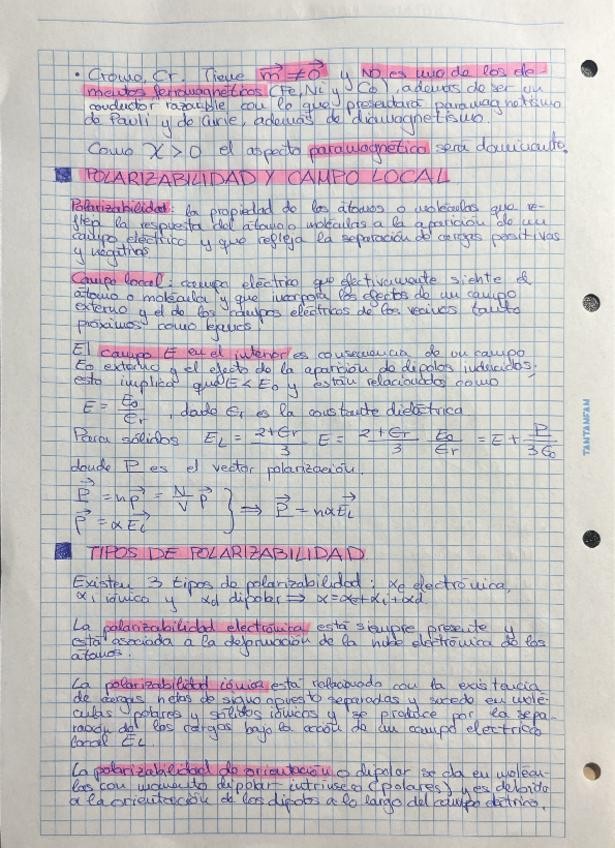 • Cromo, Cr. Tiene m⃗ ≠ 0⃗ y NO es uno de los ele-
mentos ferromagnéticos (Fe, Ni y Co), además de ser un
conductor razonable con lo que presentará paramagnetismo
de Pauli y de Curie, además de diamagnetismo.
Como χ > 0 el aspecto paramagnético será dominante.
POLARIZABILIDAD Y CAMPO LOCAL
Polarizabilidad: la propiedad de los átomos o moléculas que re-
fleja la respuesta del átomo o moléculas a la aparición de un
campo eléctrico y que refleja la separación de cargas positivas
y negativas
Campo local: campo eléctrico que efectivamente siente el
átomo o molécula y que incorpora los efectos de un campo
externo y el de los campos eléctricos de los vecinos tanto
próximos como lejanos.
El campo E en el interior es consecuencia de un campo
E₀ externo y el efecto de la aparición de dipolos inducidos;
esto implica que E < E₀ y están relacionados como
E = E₀/εr , donde εr es la constante dieléctrica
Para sólidos E_L = (2+εr)/3 E = (2+εr)/3 E₀/εr = E + P/3ε₀
donde P es el vector polarización.
P⃗ = np⃗ = N/V p⃗
p⃗ = αE_L⃗ } ⟹ P⃗ = nαE_L⃗
TIPOS DE POLARIZABILIDAD
Existen 3 tipos de polarizabilidad: αe electrónica,
αi iónica y αd dipolar ⟹ α=αe+αi+αd
La polarizabilidad electrónica está siempre presente y
está asociada a la deformación de la nube electrónica de los
átomos.
La polarizabilidad iónica está relacionada con la existencia
de cargas netas de signo opuesto separadas y sucede en molé-
culas polares y sólidos iónicos y se produce por la sepa-
ración de las cargas bajo la acción de un campo eléctrico
local E_L.
La polarizabilidad de orientación o dipolar se da en molécu-
las con momento dipolar intrínseco (polares) y es debido
a la orientación de los dipolos a lo largo del campo eléctrico.
TANTANFAN